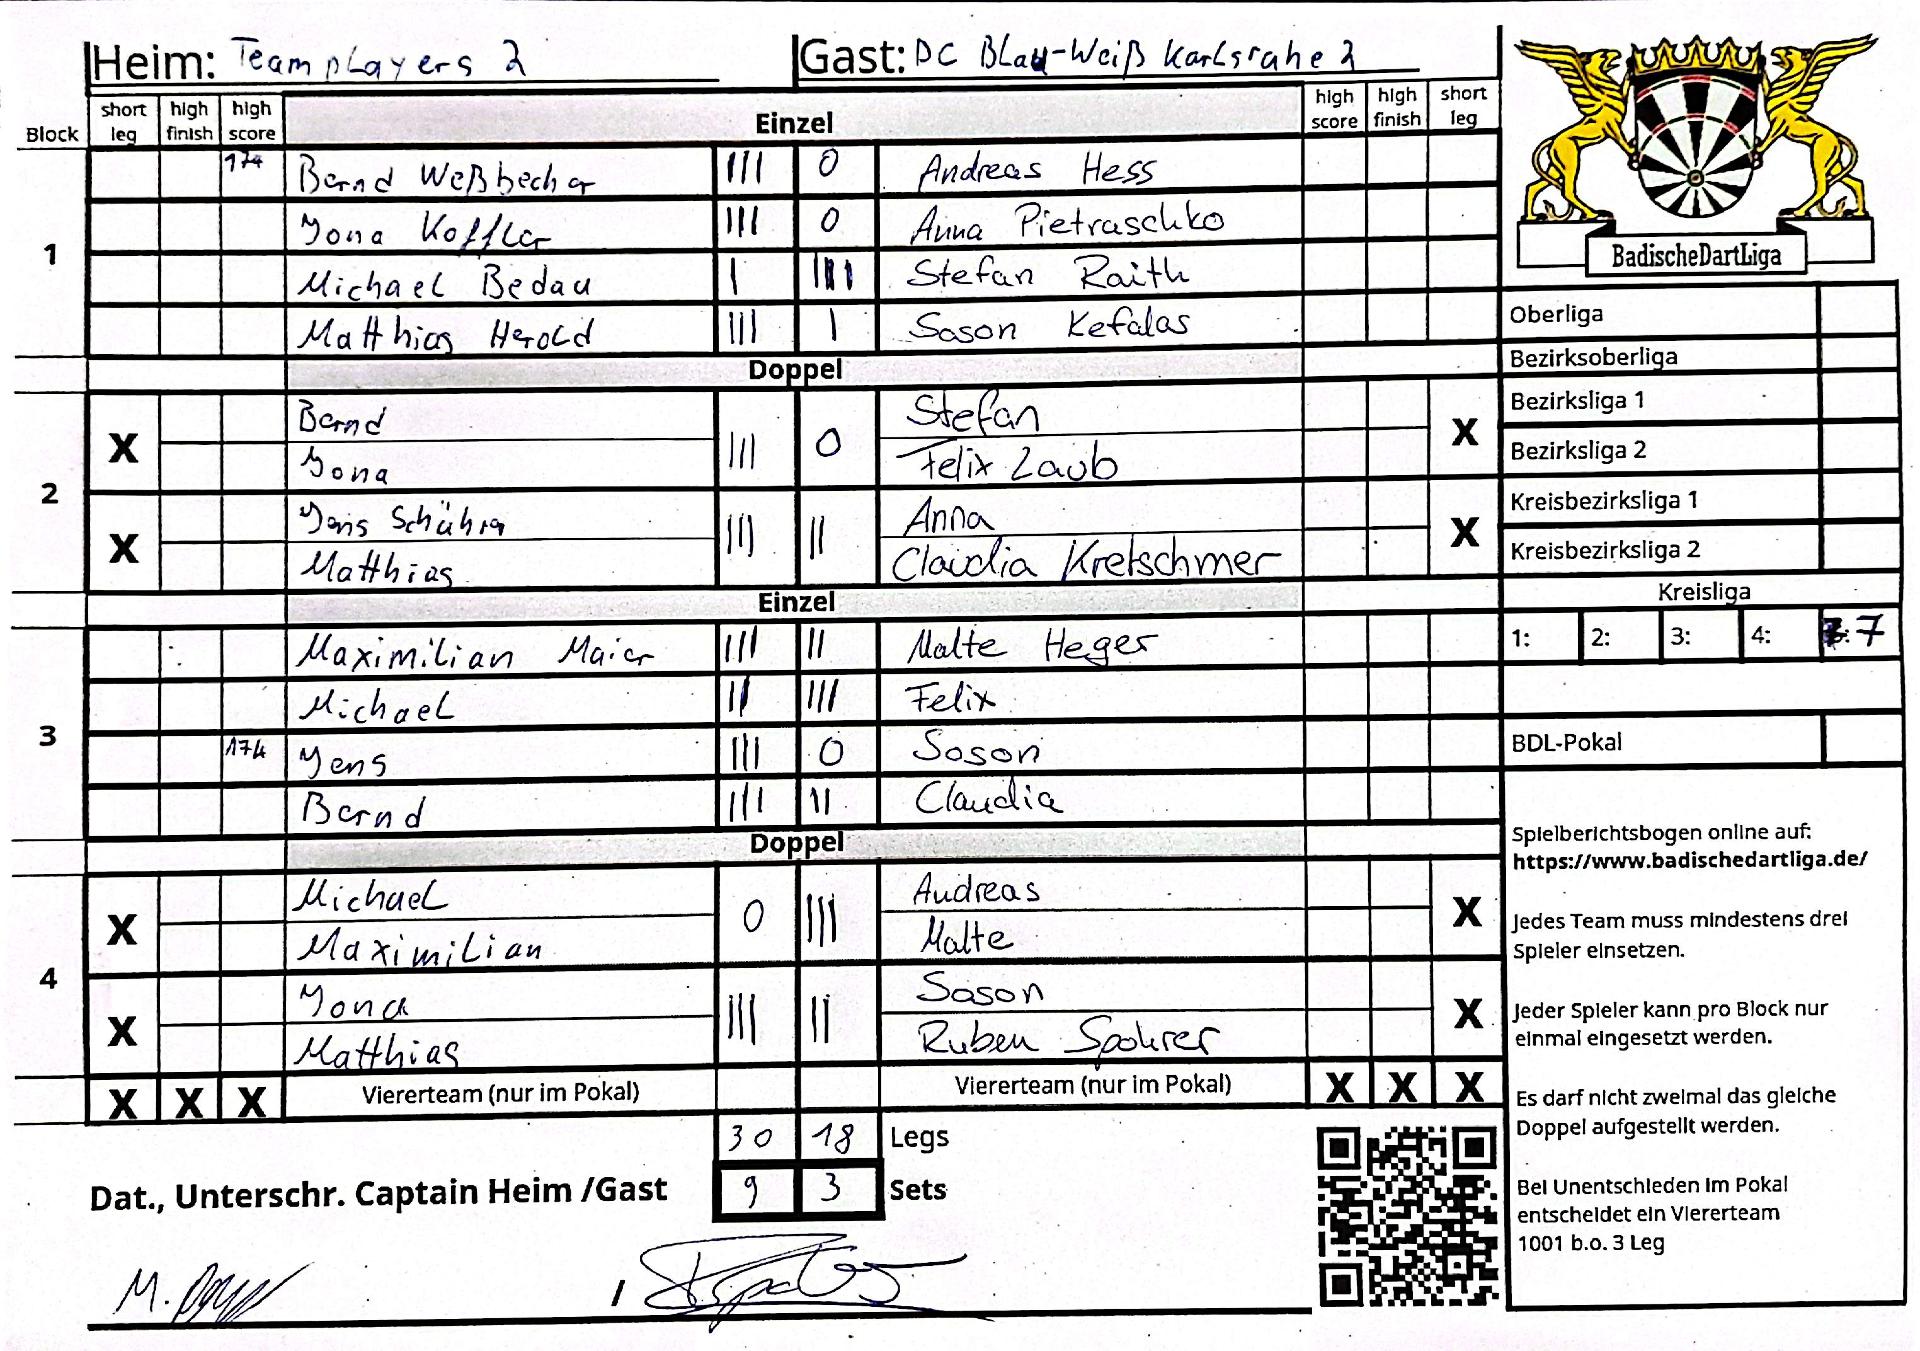 Heim: Teamplayers 2 Gast: DC Blau-Weiß Karlsruhe 2
Block short leg high finish high score Einzel high score high finish short leg
1
174 Bernd Weßbecher III 0 Andreas Hess
Jona Koffler III 0 Anna Pietraschko
Michael Bedau I III Stefan Raith
Matthias Herold III I Sason Kefalas
Doppel
2
X Bernd III 0 Stefan X
Jona Felix Laub
X Jens Schührer III II Anna X
Matthias Claudia Kretschmer
Einzel
3
Maximilian Maier III II Malte Heger
Michael II III Felix
174 Jens III 0 Sason
Bernd III II Claudia
Doppel
4
X Michael 0 III Andreas X
Maximilian Malte
X Jona III II Sason X
Matthias Ruben Spohrer
X X X Viererteam (nur im Pokal) Viererteam (nur im Pokal) X X X
30 18 Legs
Dat., Unterschr. Captain Heim /Gast 9 3 Sets
M. /
BadischeDartLiga
Oberliga
Bezirksoberliga
Bezirksliga 1
Bezirksliga 2
Kreisbezirksliga 1
Kreisbezirksliga 2
Kreisliga
1: 2: 3: 4: 7
BDL-Pokal
Spielberichtsbogen online auf:
https://www.badischedartliga.de/
Jedes Team muss mindestens drei
Spieler einsetzen.
Jeder Spieler kann pro Block nur
einmal eingesetzt werden.
Es darf nicht zweimal das gleiche
Doppel aufgestellt werden.
Bei Unentschieden im Pokal
entscheidet ein Viererteam
1001 b.o. 3 Leg